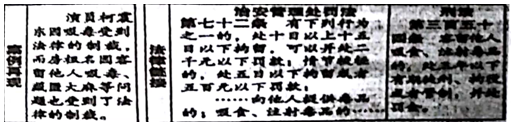 案例再现
演员柯震
东因吸毒受到
法律的制裁，
而房祖名因容
留他人吸毒、
藏匿大麻等问
题也受到了法
律的制裁。
法律链接
治安管理处罚法
第七十二条 有下列行为
之一的，处十日以上十五
日以下拘留，可以并处二
千元以下罚款；情节较轻
的，处五日以下拘留或者
五百元以下罚款：
……向他人提供毒品
的；吸食、注射毒品的……
刑法
第三百五十
四条 容留他人
吸食、注射毒品
的，处三年以下
有期徒刑、拘役
或者管制，并处
罚金。